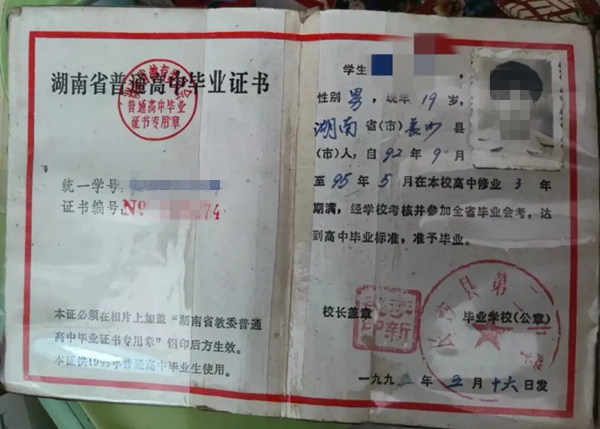 湖南省普通高中毕业证书
普通高中毕业
证书专用章
统一学号
证书编号 No 274
本证必须在相片上加盖“湖南省教委普通
高中毕业证书专用章”钢印后方生效。
本证供1995年普通高中毕业生使用。
学生
性别 男，现年 19 岁，
湖南 省(市) 长沙 县
(市)人，自 92 年 9 月
至 95 年 5 月在本校高中修业 3 年
期满，经学校考核并参加全省毕业会考，达
到高中毕业标准，准予毕业。
校长盖章
毕业学校(公章)
县第
一九九五年 五 月 十六 日发